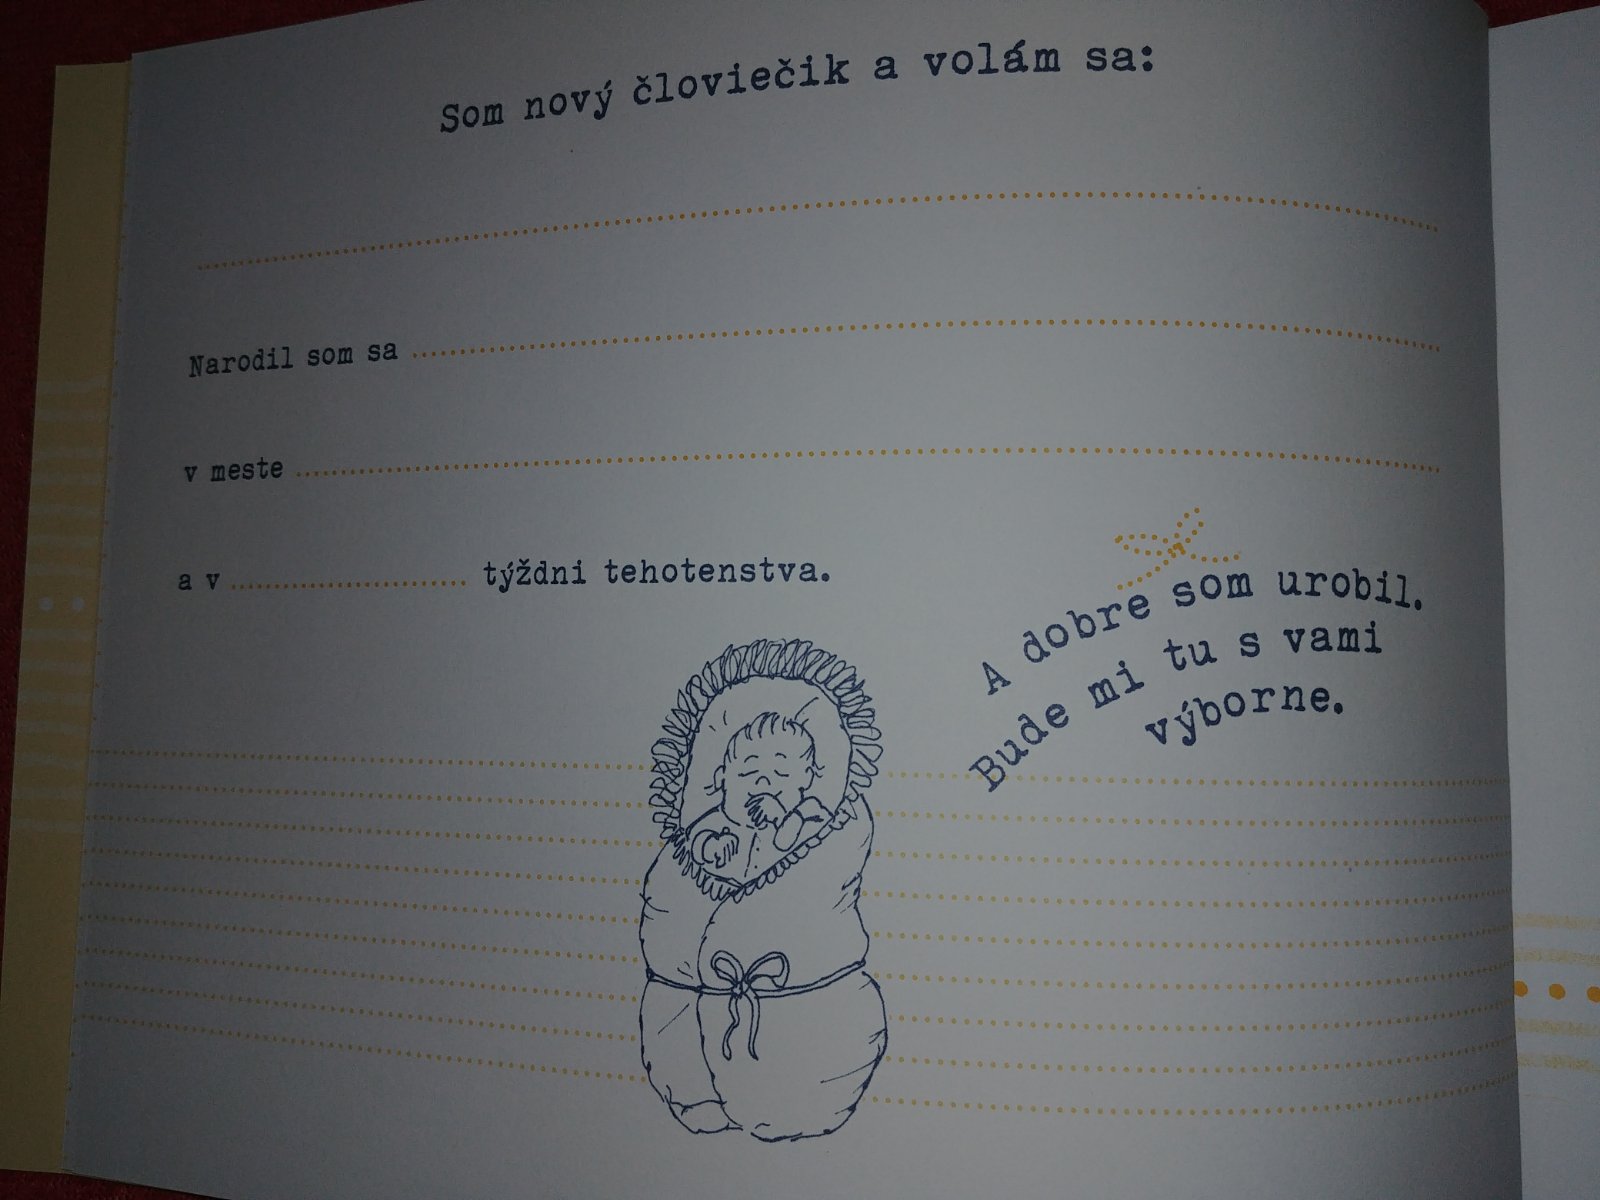 Som nový človiečik a volám sa:
Narodil som sa
v meste
a v týždni tehotenstva.
A dobre som urobil.
Bude mi tu s vami
výborne.